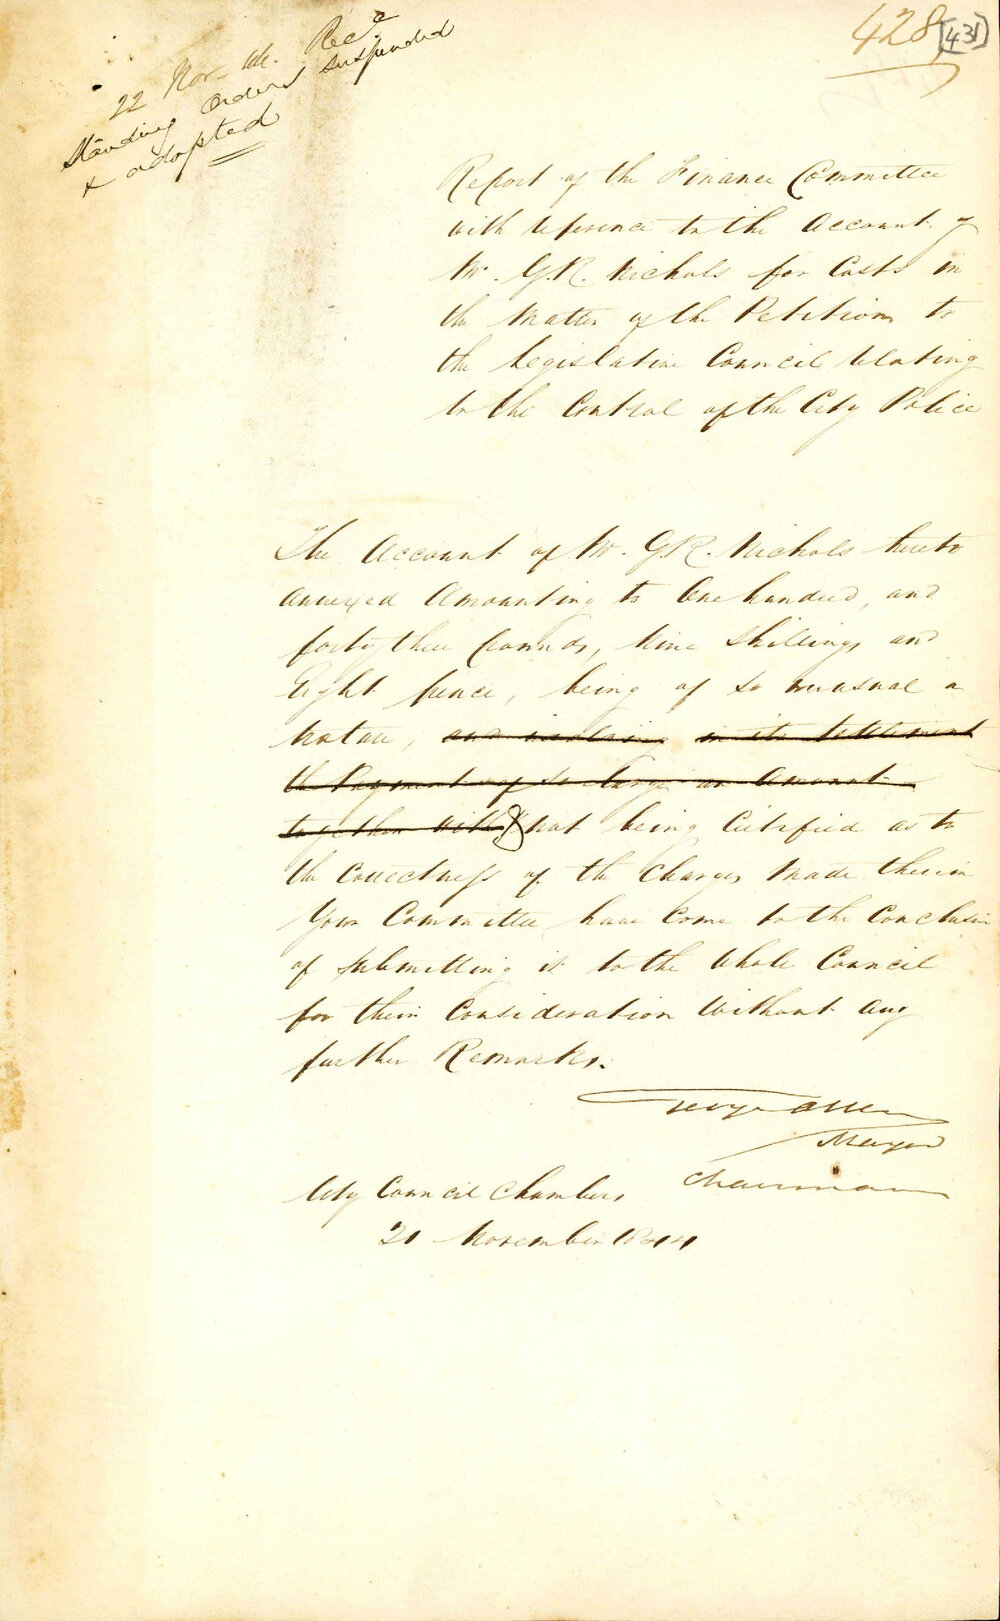 428
[431]
22 Nov. 44. Recd
Standing Orders suspended
& adopted
Report of the Finance Committee
with reference to the Account of
Mr. G.R. Nichols for Costs in
the Matter of the Petition to
the Legislative Council relating
to the Control of the City Police
The Account of Mr. G.R. Nichols hereto
annexed Amounting to One hundred, and
forty three pounds, Nine Shillings and
Eight pence, being of so unusual a
Nature, and involving in its settlement
the Payment of so large an Amount
together with & not being Certified as to
the Correctness of the Charges Made therein
Your Committee have Come to the Conclusion
of submitting it to the Whole Council
for their Consideration Without any
further Remarks.
George Allen
Mayor
Chairman
City Council Chambers
21 November 1844